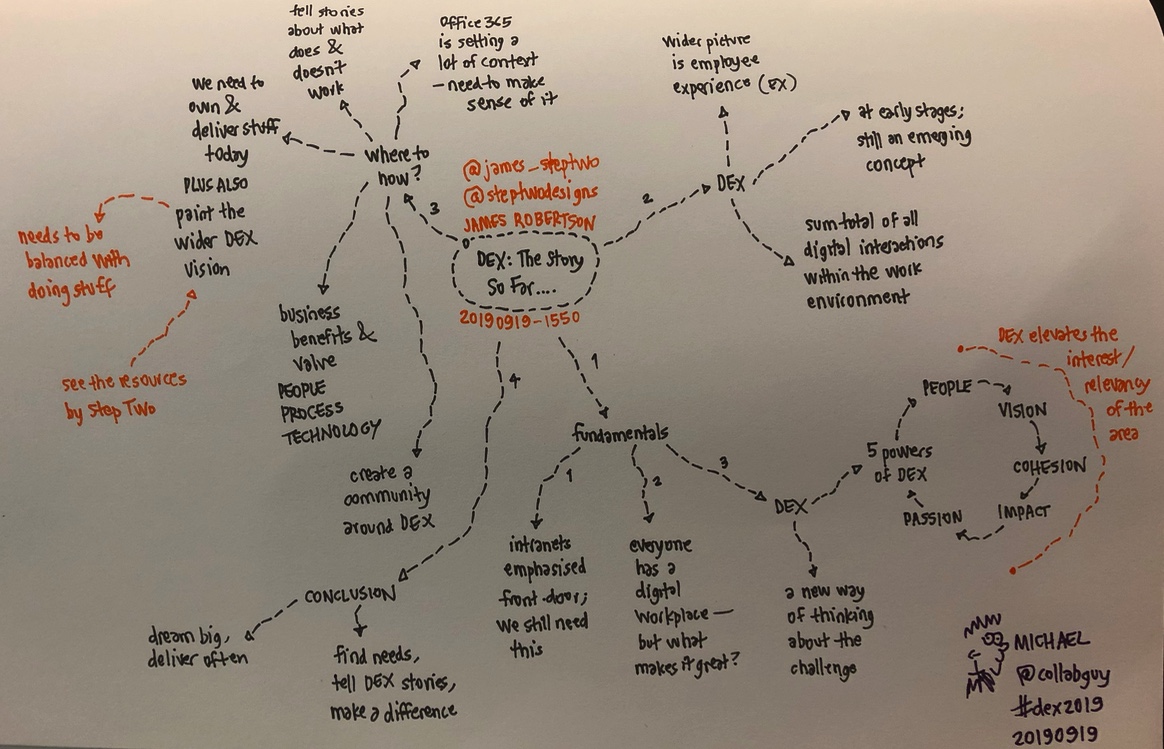 tell stories
about what
does &
doesn't
work
Office 365
is setting a
lot of context
— need to make
sense of it
we need to
own &
deliver stuff
today
PLUS ALSO
paint the
wider DEX
vision
needs to be
balanced with
doing stuff
see the resources
by Step Two
where to
now?
3
@james_steptwo
@steptwodesigns
JAMES ROBERTSON
DEX: The Story
So Far....
20190919-1550
2
DEX
wider picture
is employee
experience (EX)
at early stages;
still an emerging
concept
sum-total of all
digital interactions
within the work
environment
business
benefits &
value
PEOPLE
PROCESS
TECHNOLOGY
create a
community
around DEX
4
CONCLUSION
dream big,
deliver often
find needs,
tell DEX stories,
make a difference
1
fundamentals
1
intranets
emphasised
front-door;
we still need
this
2
everyone
has a
digital
workplace —
but what
makes it great?
3
DEX
a new way
of thinking
about the
challenge
5 powers
of DEX
PEOPLE
VISION
COHESION
IMPACT
PASSION
DEX elevates the
interest/
relevancy
of the
area
MICHAEL
@collabguy
#dex2019
20190919